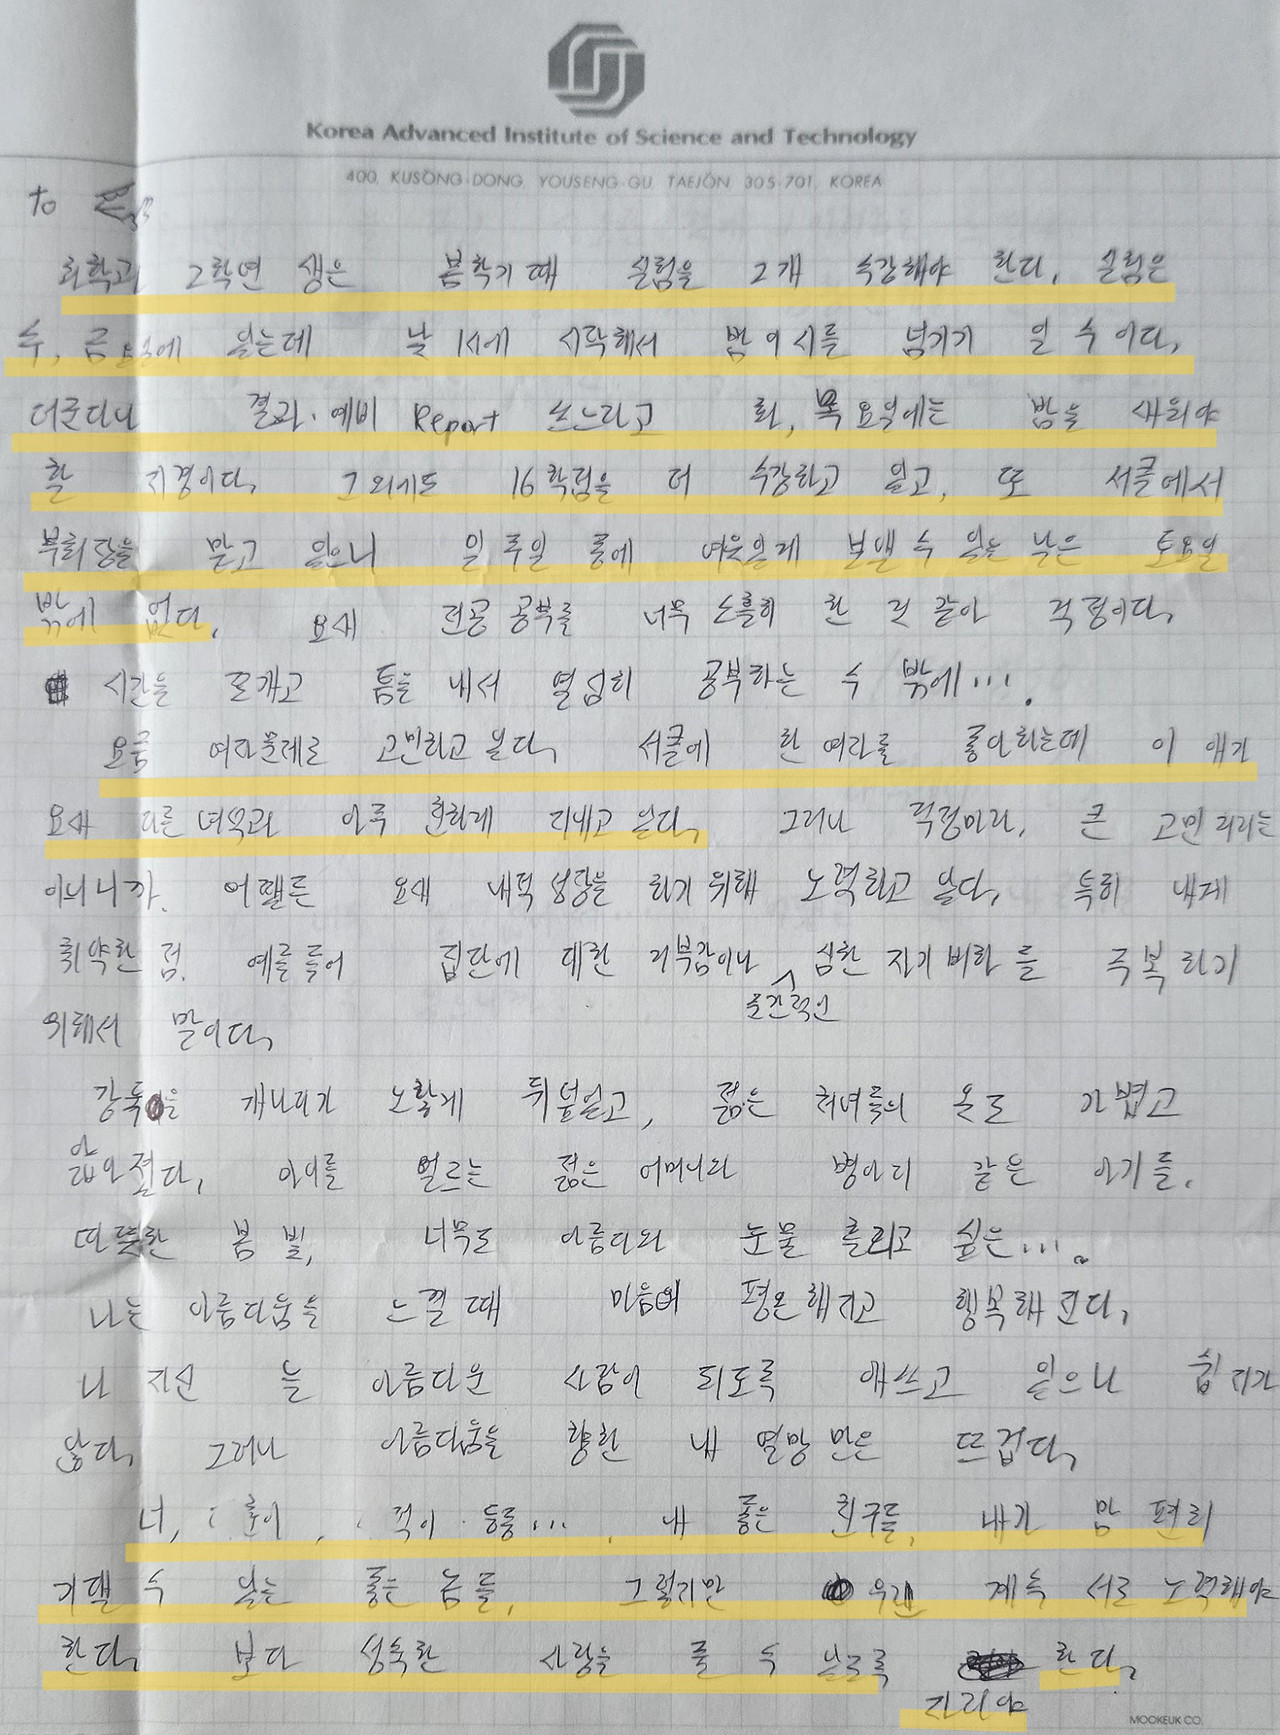 Korea Advanced Institute of Science and Technology
400, KUSONG-DONG, YOUSENG-GU, TAEJŎN 305-701, KOREA
to
화학과 2학년 생은 봄학기때 실험을 2개 수강해야 한다. 실험은
수, 금요일에 있는데 낮 1시에 시작해서 밤 이시를 넘기기 일 수이다.
더군다나 결과·예비 Report 쓰느라고 화, 목요일에는 밤을 새워야
할 지경이다. 그외에도 16학점을 더 수강하고 있고, 또 서클에서
부회장을 맡고 있으니 일주일 중에 여유있게 보낼 수 있는 날은 토요일
밖에 없다. 요새 전공 공부를 너무 소홀히 한 것 같아 걱정이다.
시간을 쪼개고 틈을 내서 열심히 공부하는 수 밖에....
요즘 여자문제로 고민하고 있다. 서클에 한 여자를 좋아하는데 이 애가
요새 다른 녀석과 아주 친하게 지내고 있다. 그러나 걱정마라. 큰 고민거리는
아니니까. 어쨌든 요새 내적 성장을 하기 위해 노력하고 있다. 특히 내게
취약한 점. 예를들어 집단에 대한 거부감이나 심한 자기비하를 극복하기
순간적인
위해서 말이다.
강둑은 개나리가 노랗게 뒤덮었고, 젊은 처녀들의 옷도 가볍고
얇아졌다. 아이를 어르는 젊은 어머니와 병아리 같은 아기들.
따뜻한 봄 빛, 너무도 아름다워 눈물 흘리고 싶은....
나는 아름다움을 느낄 때 마음이 평온해지고 행복해 진다.
나 자신 늘 아름다운 사람이 되도록 애쓰고 있으나 쉽지가
않다. 그러나 아름다움을 향한 내 열망만은 뜨겁다.
너, 훈이, 적이 등등.... 내 좋은 친구들, 내가 맘 편히
기댈 수 있는 좋은 놈들, 그렇지만 우린 계속 서로 노력해야
한다. 보다 성숙한 사랑을 줄 수 있도록 한다.
자라야
MOOKEUK CO.